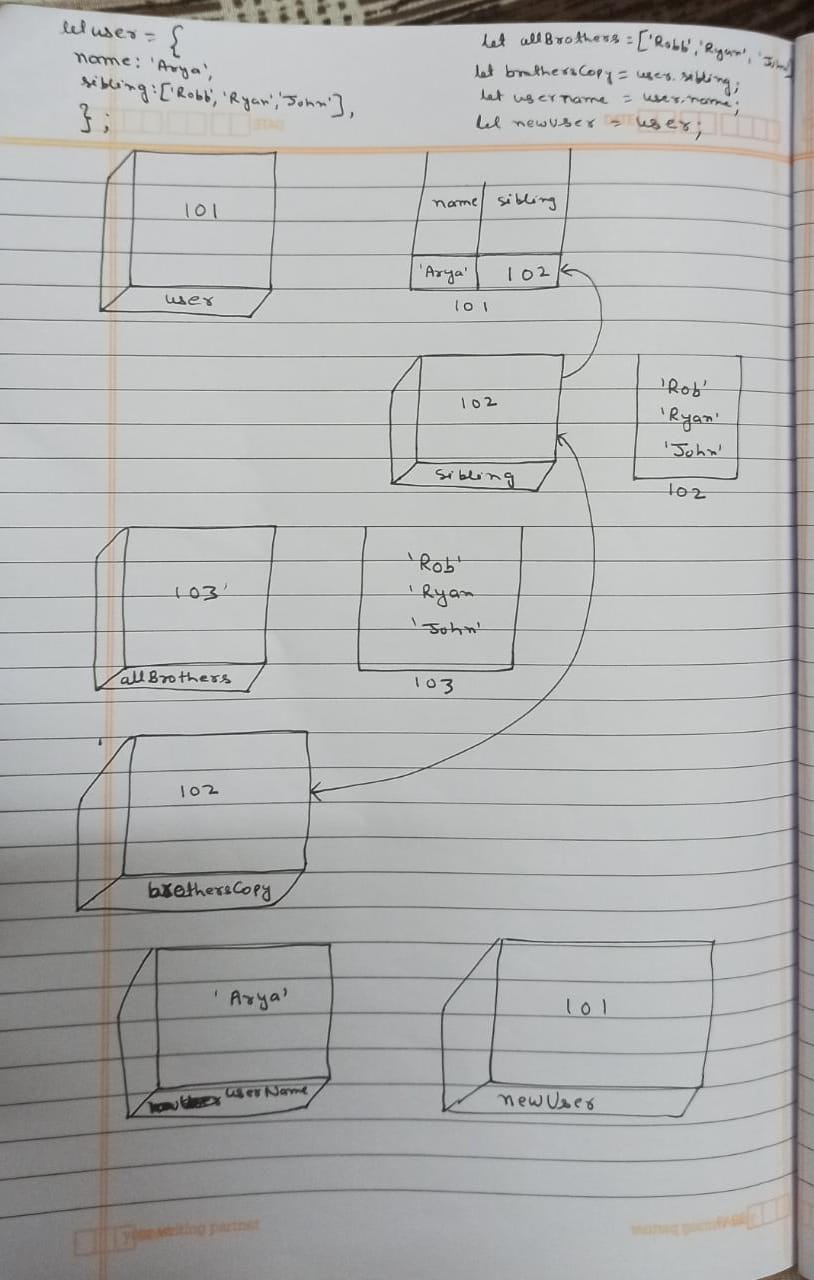 let user = {
name: 'Arya',
sibling: ['Robb', 'Ryan', 'John'],
};
let allBrothers = ['Robb', 'Ryan', 'John']
let brothersCopy = user.sibling;
let username = user.name;
let newUser = user;
DATE
101
user
name sibling
'Arya' 102
101
102
sibling
'Rob'
'Ryan'
'John'
102
103
allBrothers
'Rob'
'Ryan
'John'
103
102
brothersCopy
'Arya'
userName
101
newUser
your writing partner